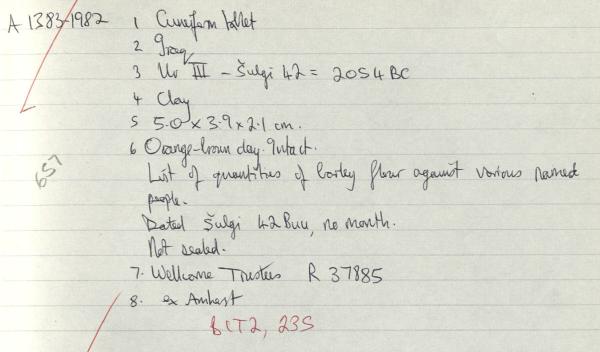 A 1383-1982
1 Cuneiform tablet
2 Iraq
3 Ur III - Šulgi 42 = 2054 BC
4 Clay
5 5.0 x 3.9 x 2.1 cm.
6 Orange-brown clay. Intact.
List of quantities of barley flour against various named
people.
Dated Šulgi 42 Buu, no month.
Not sealed.
7. Wellcome Trustees R 37885
8. ex Amherst
657
BCT2, 235